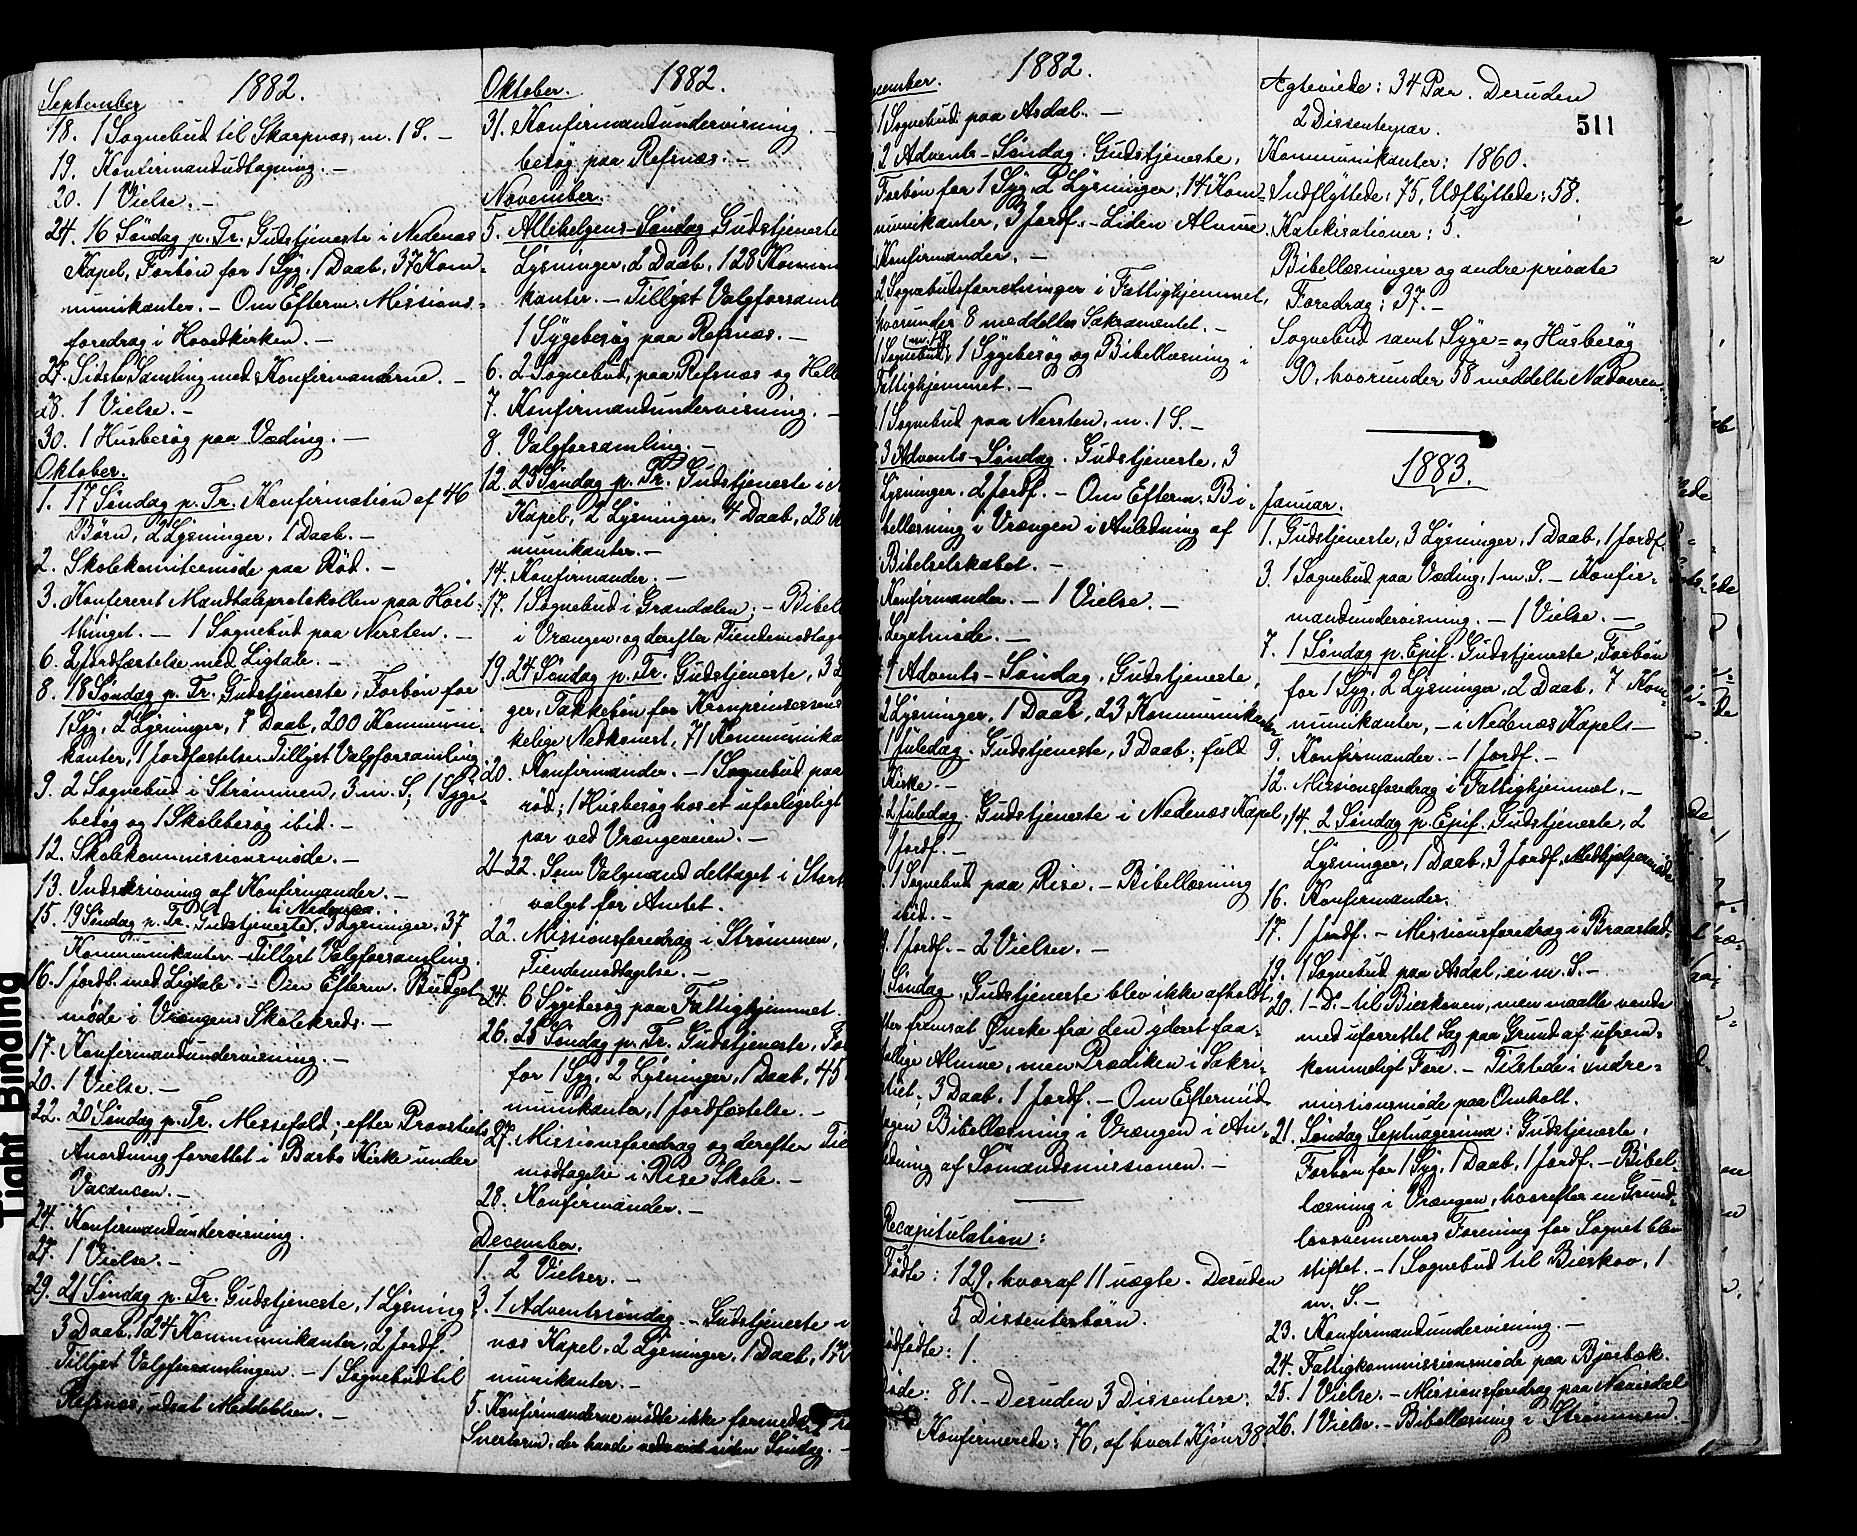 1882.
September
18. 1 Sognebud til Skarpnæs, m. 1 S. —
19. Konfirmandudtagning. —
20. 1 Vielse. —
24. 16 Søndag p. Tr. Gudstjeneste i Nedenæs
Kapel, Forbøn for 1 Syg, 1 Daab, 37 Kom-
munikanter. — Om Efterm. Missions-
foredrag i Hovedkirken. —
27. Sidste Samling med Konfirmanderne. —
28. 1 Vielse. —
30. 1 Husbesøg paa Væding. —
Oktober.
1. 17 Søndag p. Tr. Konfirmation af 46
Børn, 2 Lysninger, 1 Daab. —
2. Skolekomiteemøde paa Rød. —
3. Konfereret Mandtalsprotokollen paa Høst-
thinget. — 1 Sognebud paa Nersten. —
6. 2 Jordfæstelse med Ligtale. —
8. 18 Søndag p. Tr. Gudstjeneste, Forbøn for
1 Syg, 2 Lysninger, 7 Daab, 200 Kommuni-
kanter, 1 Jordfæstelse. Tillyst Valgforsamling.
9. 2 Sognebud i Strømmen, 3 m. S; 1 Syge-
besøg og 1 Skolebesøg ibid. —
12. Skolekommissionsmøde. —
13. Indskrivning af Konfirmander. —
15. 19 Søndag p. Tr. Gudstjeneste i Nedenæs, 3 Lysninger, 37
Kommunikanter. — Tillyst Valgforsamling.
16. 1 Jordf. med Ligtale. — Om Efterm. Budget-
møde i Vrængens Skolekreds. —
17. Konfirmandundervisning. —
20. 1 Vielse. —
22. 20 Søndag p. Tr. Messefald; efter Provstiets
Anordning forrettet i Barbo Kirke under
Vacancen. —
24. Konfirmandundervisning.
27. 1 Vielse. —
29. 21 Søndag p. Tr. Gudstjeneste, 1 Lysning
3 Daab, 124 Kommunikanter, 2 Jordf.
Tillyst Valgforsamlingen. — 1 Sognebud til
Refsnæs, uden Meddelelsen. —
1882.
Oktober.
31. Konfirmandundervisning. —
besøg paa Refsnæs. —
November.
5. Allehelgens-Søndag Gudstjeneste
Lysninger, 2 Daab, 128 Kommuni
kanter. — Tillyst Valgforsaml
1 Sygebesøg paa Refsnæs. —
6. 2 Sognebud, paa Refsnæs og Helle
7. Konfirmandundervisning. —
8. Valgforsamling. —
12. 23 Søndag p. Tr. Gudstjeneste i N
Kapel, 2 Lysninger, 4 Daab, 28 K
munikanter. —
14. Konfirmander. —
17. 1 Sognebud i Grændalen. — Bibel
i Vrængen, og derefter Tiendemodtag
19. 24 Søndag p. Tr. Gudstjeneste, 3 L
ger, Takkebøn for Kronprinsessens
kelige Nedkomst, 71 Kommunika
20. Konfirmander. — 1 Sognebud paa
rød; 1 Husbesøg hos et uforligeligt
par ved Vrængeveien. —
21–22. Som Valgmand deltaget i Stort
valget for Amtet.
22. Missionsforedrag i Strømmen,
Tiendemodtagelse. —
24. 6 Sygebesøg paa Fattighjemmet.
26. 25 Søndag p. Tr. Gudstjeneste, For
for 1 Syg, 2 Lysninger, 1 Daab, 45
munikanter, 1 Jordfæstelse. —
27. Missionsforedrag og derefter Tie
modtagelse i Rise Skole. —
28. Konfirmander. —
December.
1. 2 Vielser. —
3. 1 Adventssøndag. — Gudstjeneste i
næs Kapel, 2 Lysninger, 1 Daab, 17
munikanter. —
5. Konfirmanderne mødte ikke formedelst
Snestorm, der havde vedvaret siden Søndag. —
1882.
cember.
1 Sognebud paa Asdal. —
2 Advents-Søndag. Gudstjeneste,
Forbøn for 1 Syg, 2 Lysninger, 14 Kom-
munikanter, 3 Jordf. — Liden Almue.
Konfirmander. —
2 Sognebudsforretninger i Fattighjemmet,
hvorunder 8 meddeltes Sakramentet. —
1 Sognebud m. 1 S., 1 Sygebesøg og Bibellæsning i
Fattighjemmet. —
1 Sognebud paa Nersten, m. 1 S. —
3 Advents-Søndag. Gudstjeneste, 3
Lysninger, 2 Jordf. — Om Efterm. Bi-
bellæsning i Vrængen i Anledning af
Bibelselskabet. —
Konfirmander. — 1 Vielse. —
Legatmøde. —
4 Advents-Søndag. Gudstjeneste,
3 Lysninger, 1 Daab, 23 Kommunikanter
1 Juledag. Gudstjeneste, 3 Daab; fuld
Kirke. —
2 Juledag. Gudstjeneste i Nedenæs Kapel,
1 Jordf. —
1 Sognebud paa Rise. — Bibellæsning
ibid. —
1 Jordf. — 2 Vielser. —
Søndag. Gudstjeneste blev ikke afholdt,
efter fremsat Ønske fra den yderst faa-
tallige Almue, men Prædiken i Sakri-
stiet; 3 Daab, 1 Jordf. — Om Eftermid-
dagen Bibellæsning i Vrængen i An-
ledning af Sømandsmissionen. —
Recapitulation:
Fødte: 129, hvoraf 11 uægte. Desuden
5 Dissenterbørn.
ødfødte: 1.
øde: 81. — Desuden 3 Dissentere.
Konfirmerede: 76, af hvert Kjøn 38.
511
Ægteviede: 34 Par. Desuden
2 Dissenterpar.
Kommunikanter: 1860.
Indflyttede: 75, Udflyttede: 58.
Katekisationer: 5.
Bibellæsninger og andre private
Foredrag: 37. —
Sognebud samt Syge- og Husbesøg
90, hvorunder 58 meddelte Nadveren.
1883.
Januar.
1. Gudstjeneste, 3 Lysninger, 1 Daab, 1 Jordf.
3. 1 Sognebud paa Væding, 1 m. S. — Konfir-
mandundervisning. — 1 Vielse. —
7. 1 Søndag p. Epif. Gudstjeneste, Forbøn
for 1 Syg, 2 Lysninger, 2 Daab, 7 Kom-
munikanter, — i Nedenæs Kapel —
9. Konfirmander. — 1 Jordf. —
12. Missionsforedrag i Fattighjemmet. —
14. 2 Søndag p. Epif. Gudstjeneste, 2
Lysninger, 1 Daab, 3 Jordf, Medhjelpermøde
16. Konfirmander.
17. 1 Jordf. — Missionsforedrag i Braastad.
19. 1 Sognebud paa Asdal, ei m. S. —
20. 1 – D°. – til Bieskoven, men maatte vende
med uforrettet Sag paa Grund af ufrem-
kommeligt Føre. — Tilstede i indre-
missionsmøde paa Omholt.
21. Søndag Septuagesima: Gudstjeneste,
Forbøn for 1 Syg, 1 Daab, 1 Jordf. — Bibel-
læsning i Vrængen, hvorefter en Grund-
lovsvennernes Forening for Sognet blev
stiftet. — 1 Sognebud til Bieskov, 1
m. S. —
23. Konfirmandundervisning. —
24. Fattigkommissionsmøde paa Bjorbæk.
25. 1 Vielse. — Missionsforedrag paa Næsdal
26. 1 Vielse. — Bibellæsning i Strømmen. —
Tight Binding